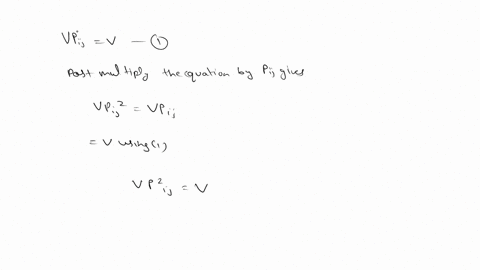 VPij = V — ①
Post multiply the equation by Pij gives
VPij² = VPij
= V using(1)
VP²ij = V